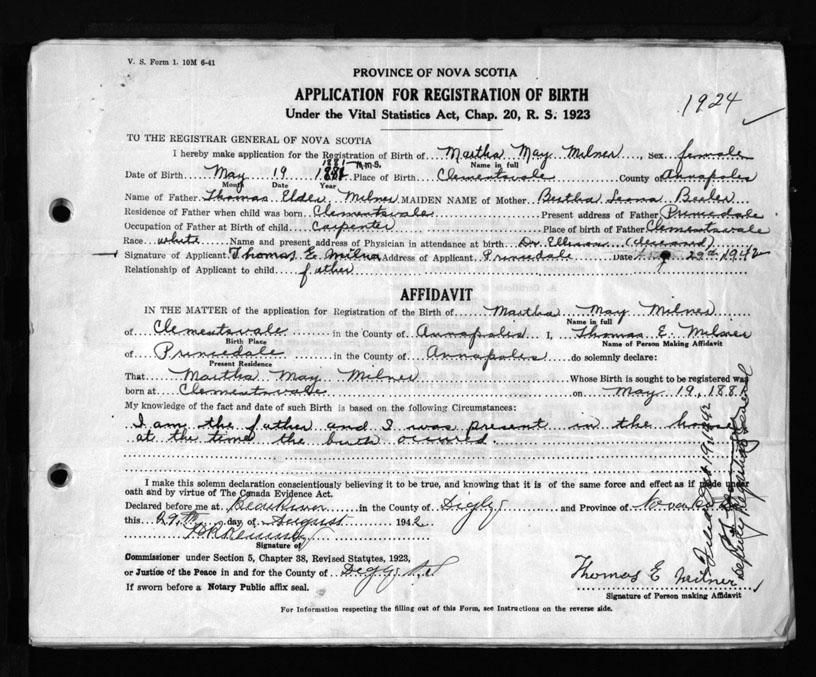 V. S. Form 1. 10M 6-41
PROVINCE OF NOVA SCOTIA
APPLICATION FOR REGISTRATION OF BIRTH
Under the Vital Statistics Act, Chap. 20, R. S. 1923
1924
TO THE REGISTRAR GENERAL OF NOVA SCOTIA
I hereby make application for the Registration of Birth of Martha May Milner, Sex female
Name in full
1881
Date of Birth May 19 Place of Birth Clementsvale County of Annapolis
Month Date Year
Name of Father Thomas Elder Milner MAIDEN NAME of Mother Bertha Beeler
Residence of Father when child was born Clementsvale Present address of Father Princedale
Occupation of Father at Birth of child Carpenter Place of birth of Father Clementsvale
Race white Name and present address of Physician in attendance at birth Dr. Ellison (deceased)
Signature of Applicant Thomas E. Milner Address of Applicant Princedale Date 29th 1942
Relationship of Applicant to child father
AFFIDAVIT
IN THE MATTER of the application for Registration of the Birth of Martha May Milner
Name in full
of Clementsvale in the County of Annapolis I, Thomas E. Milner
Birth Place Name of Person Making Affidavit
of Princedale in the County of Annapolis do solemnly declare:
Present Residence
That Martha May Milner Whose Birth is sought to be registered was
born at Clementsvale on May 19, 1881
My knowledge of the fact and date of such Birth is based on the following Circumstances:
I am the father and I was present in the house
at the time the birth occured.
I make this solemn declaration conscientiously believing it to be true, and knowing that it is of the same force and effect as if made under
oath and by virtue of The Canada Evidence Act.
Declared before me at Bear River in the County of Digby and Province of Nova Scotia
this 29th day of August 1942
Signature of
Commissioner under Section 5, Chapter 38, Revised Statutes, 1923,
or Justice of the Peace in and for the County of Digby N.S.
If sworn before a Notary Public affix seal.
Thomas E Milner
Signature of Person making Affidavit
For Information respecting the filling out of this Form, see Instructions on the reverse side.
19, 1942
Deputy Registrar General